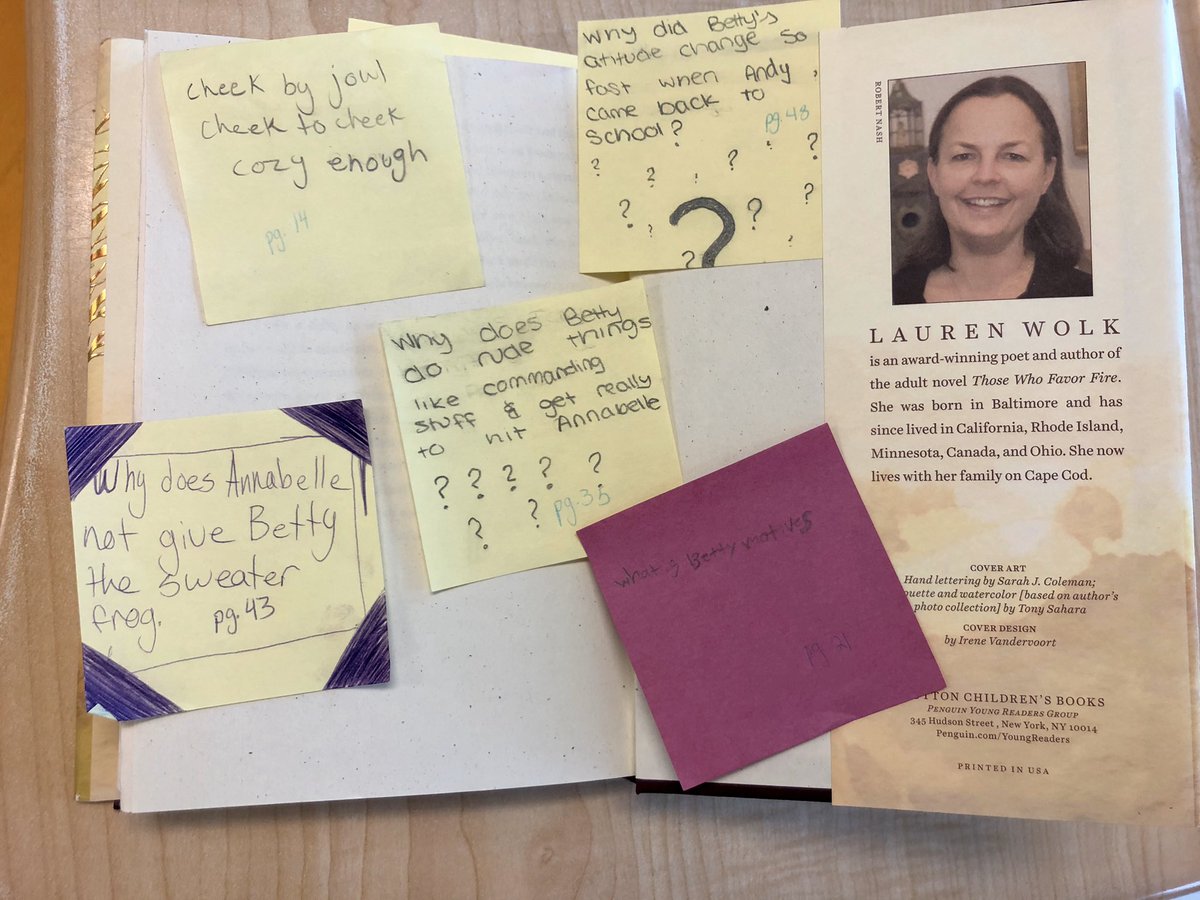 cheek by jowl
cheek to cheek
cozy enough
pg. 14
Why did Betty's
atitude change so
fast when Andy
came back to
school?
pg. 48
? ? ? ?
? ? ? ?
? ? ? ?
Why does Betty
do rude things
like commanding
stuff & get really
to hit Annabelle
? ? ? ? ?
? ? pg. 35
Why does Annabelle
not give Betty
the sweater
frog.
pg. 43
what s Betty motives
pg 21
ROBERT NASH
LAUREN WOLK
is an award-winning poet and author of
the adult novel Those Who Favor Fire.
She was born in Baltimore and has
since lived in California, Rhode Island,
Minnesota, Canada, and Ohio. She now
lives with her family on Cape Cod.
COVER ART
Hand lettering by Sarah J. Coleman;
and watercolor [based on author's
photo collection] by Tony Sahara
COVER DESIGN
by Irene Vandervoort
CHILDREN'S BOOKS
PENGUIN YOUNG READERS GROUP
345 Hudson Street , New York, NY 10014
Penguin.com/YoungReaders
PRINTED IN USA